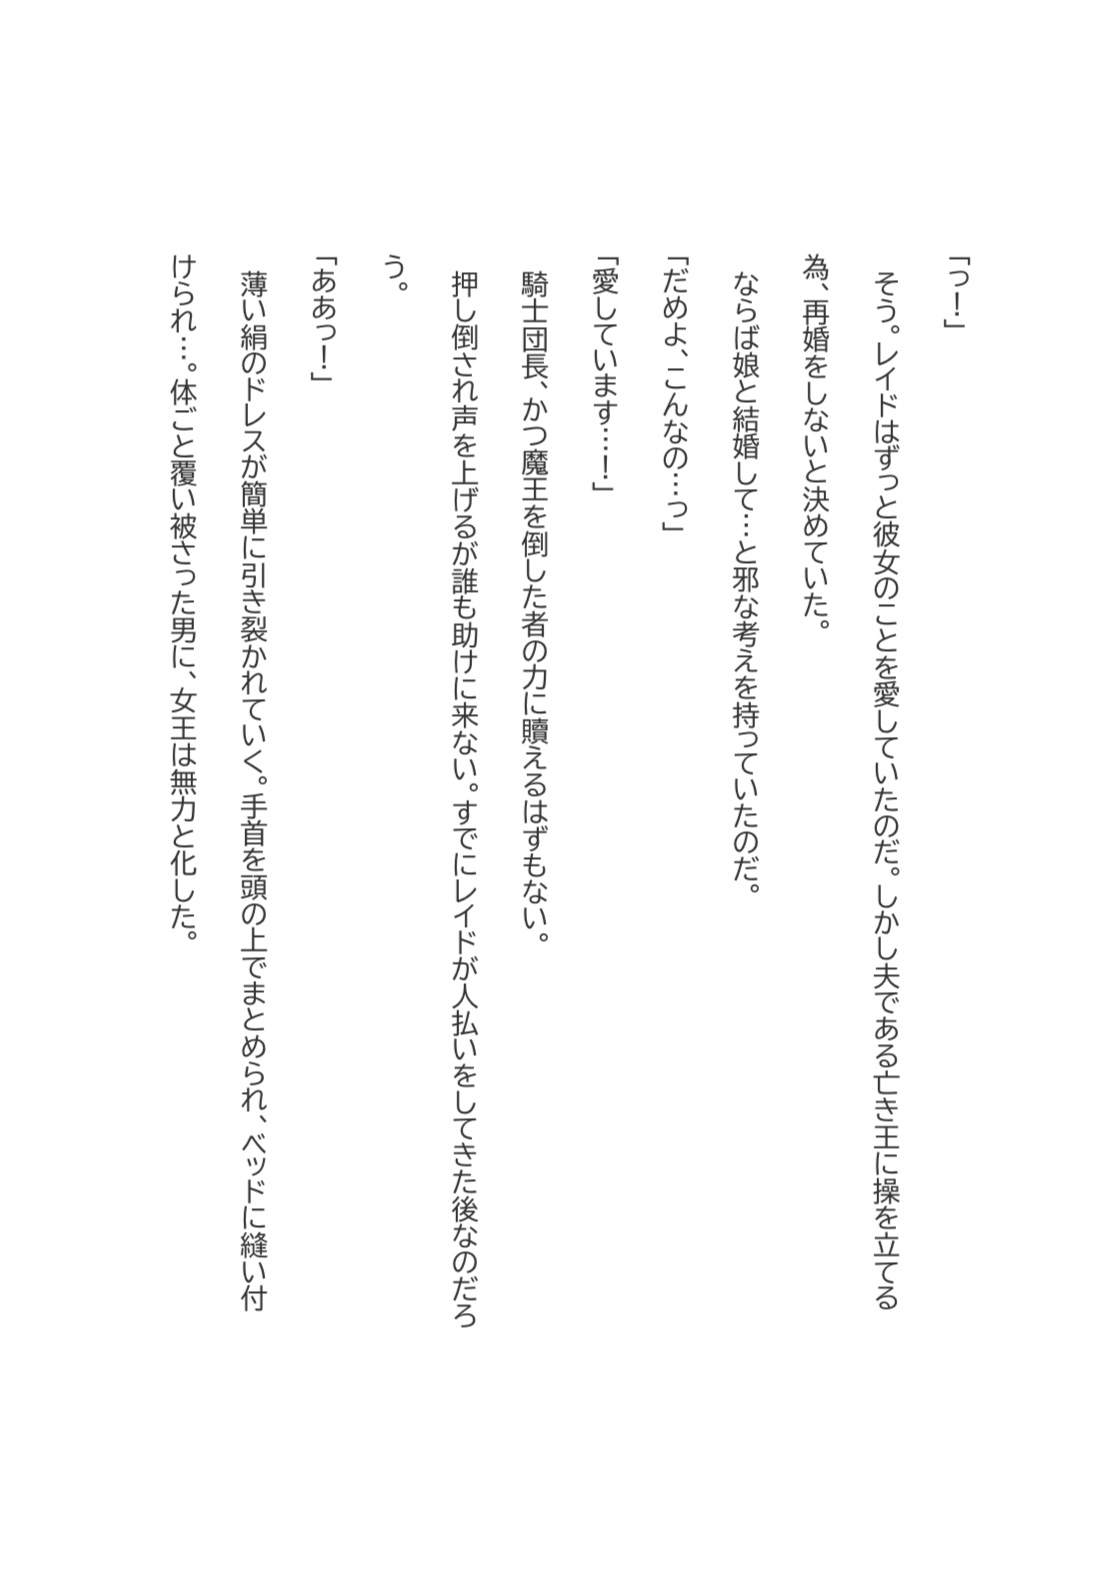 「っ！」
そう。レイドはずっと彼女のことを愛していたのだ。しかし夫である亡き王に操を立てる
為、再婚をしないと決めていた。
ならば娘と結婚して…と邪な考えを持っていたのだ。
「だめよ、こんなの…っ」
「愛しています…！」
騎士団長、かつ魔王を倒した者の力に贖えるはずもない。
押し倒され声を上げるが誰も助けに来ない。すでにレイドが人払いをしてきた後なのだろ
う。
「ああっ！」
薄い絹のドレスが簡単に引き裂かれていく。手首を頭の上でまとめられ、ベッドに縫い付
けられ…。体ごと覆い被さった男に、女王は無力と化した。